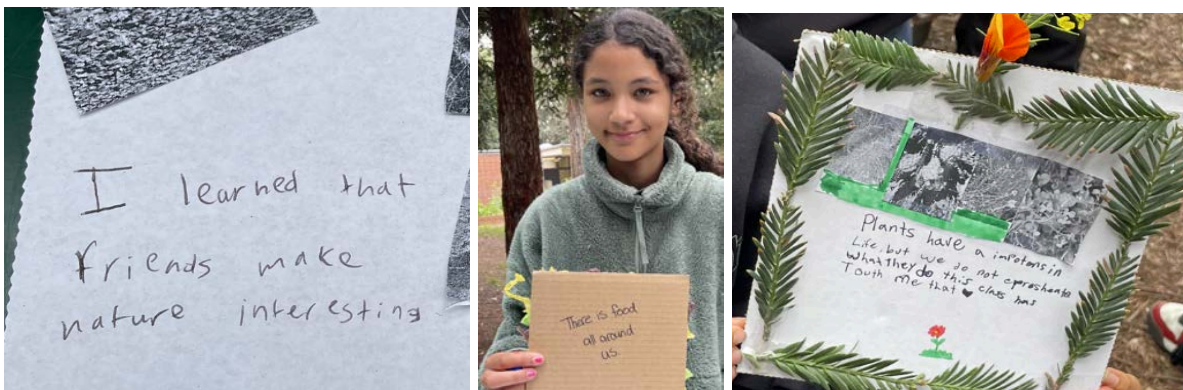 I learned that
friends make
nature interesting
There is food
all around
us.
Plants have a impotons in
Life, but we do not epresheate
what They do this class has
Touth me that